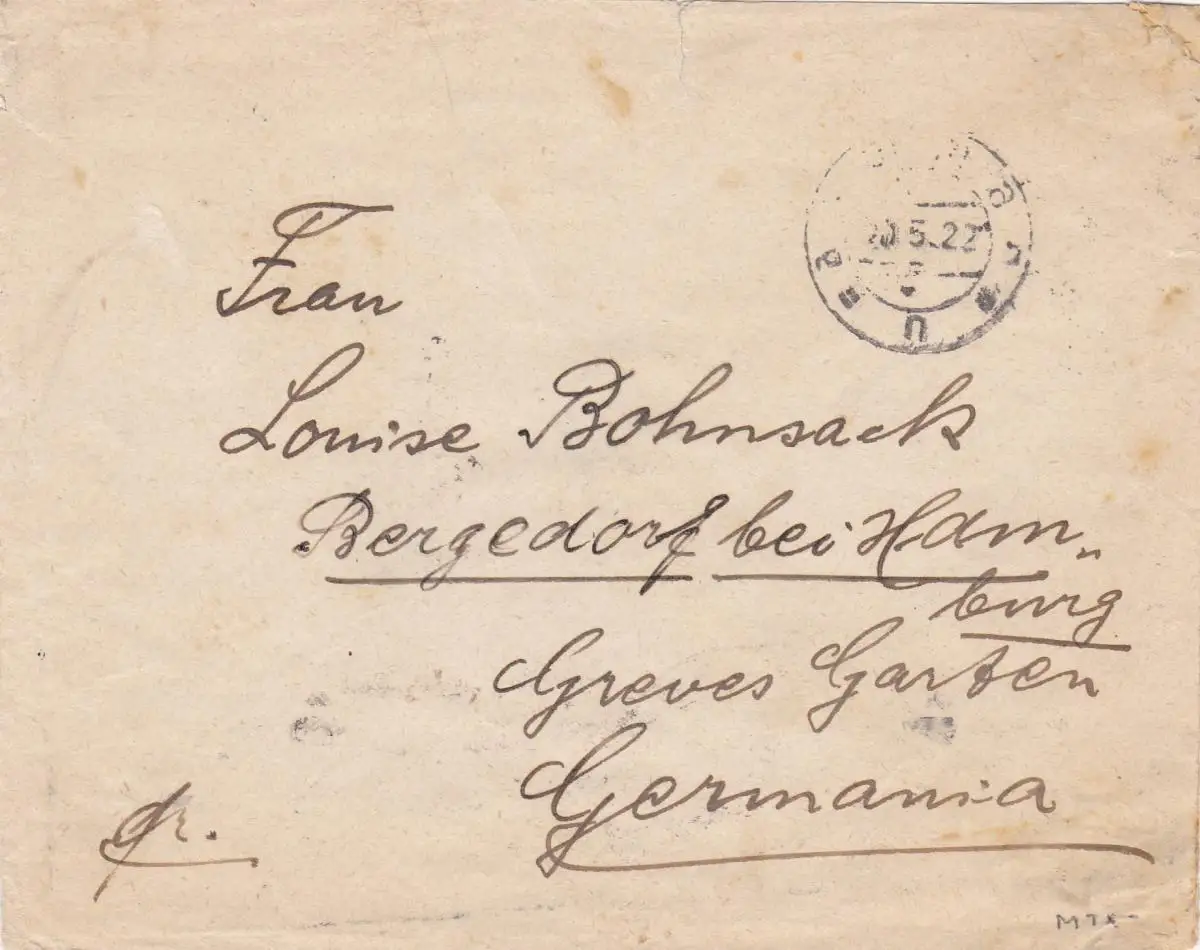 20.5.22
Frau
Louise Bohnsack
Bergedorf bei Ham„
burg
Greves Garten
Germania